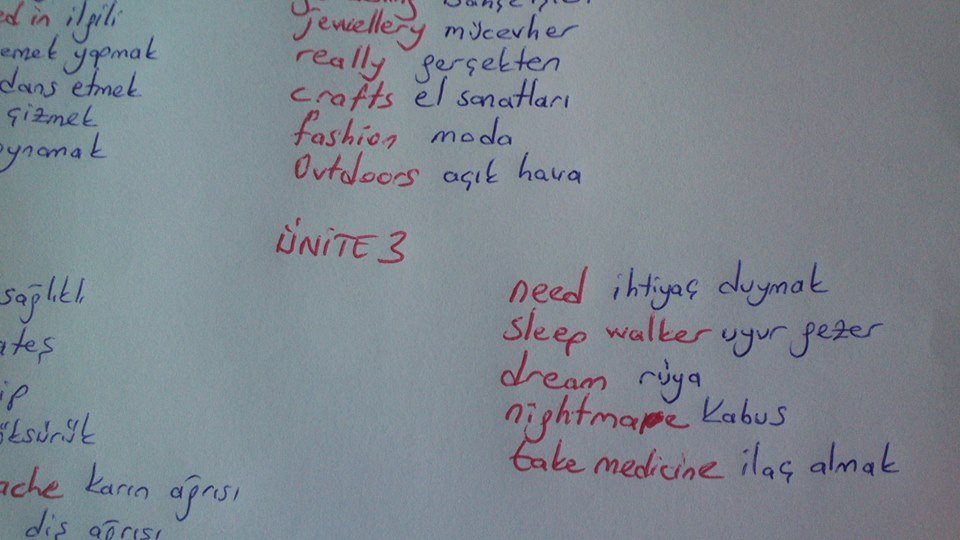 ed in ilgili
emek yapmak
dans etmek
çizmek
oynamak
jewellery mücevher
really gerçekten
crafts el sanatları
fashion moda
Outdoors açık hava
ÜNİTE 3
sağlıklı
ateş
ip
öksürük
ache karın ağrısı
diş ağrısı
need ihtiyaç duymak
sleep walker uyur gezer
dream rüya
nightmare kabus
take medicine ilaç almak